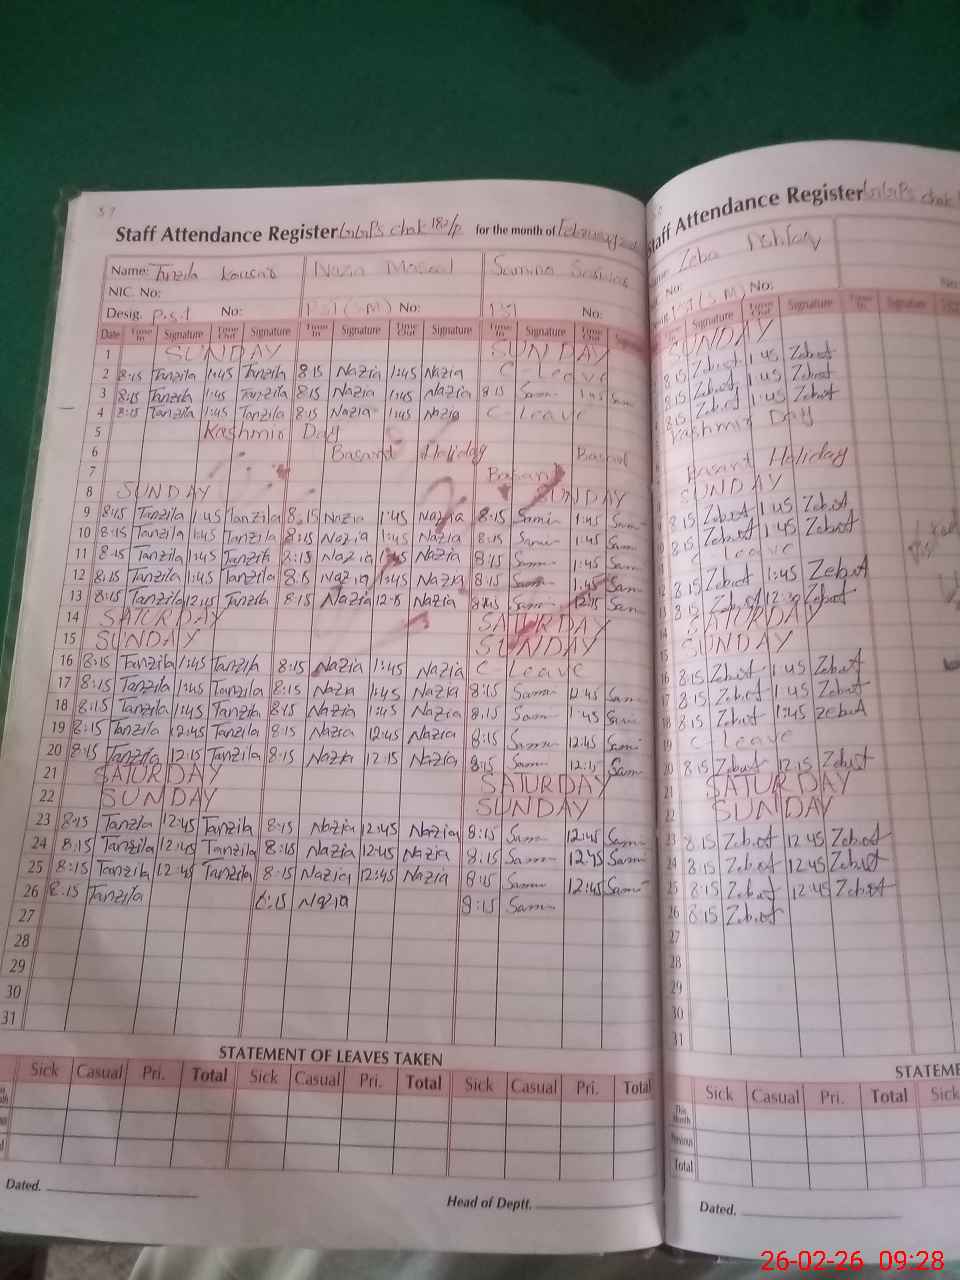 57
Staff Attendance Register GGPS chak 182/P for the month of February
Name: Tanzila Kousar Nazia
NIC. No:
Desig. P.S.T No: PST (S.M) No: PST No:
Date Time In Signature Time Out Signature Time In Signature Time Out Signature Time In Signature Time Out Signature
1 SUNDAY SUNDAY
2 8:15 Tanzila 1:45 Tanzila 8:15 Nazia 1:45 Nazia C-Leave
3 8:15 Tanzila 1:45 Tanzila 8:15 Nazia 1:45 Nazia 8:15 Sam 1:45 Sam
4 8:15 Tanzila 1:45 Tanzila 8:15 Nazia 1:45 Nazia C-Leave
5 Kashmir Day
6 Basant Holiday Basant
7 Basant
8 SUNDAY SUNDAY
9 8:15 Tanzila 1:45 Tanzila 8:15 Nazia 1:45 Nazia 8:15 Sami 1:45 Sam
10 8:15 Tanzila 1:45 Tanzila 8:15 Nazia 1:45 Nazia 8:15 Sami 1:45 Sam
11 8:15 Tanzila 1:45 Tanzila 8:15 Nazia 1:45 Nazia 8:15 Sam 1:45 Sam
12 8:15 Tanzila 1:45 Tanzila 8:15 Nazia 1:45 Nazia 8:15 Sam 1:45 Sam
13 8:15 Tanzila 12:15 Tanzila 8:15 Nazia 12:15 Nazia 8:15 Sam 12:15 Sam
14 SATURDAY SATURDAY
15 SUNDAY SUNDAY
16 8:15 Tanzila 1:45 Tanzila 8:15 Nazia 1:45 Nazia C-Leave
17 8:15 Tanzila 1:45 Tanzila 8:15 Nazia 1:45 Nazia 8:15 Sam Sam
18 8:15 Tanzila 1:45 Tanzila 8:15 Nazia 1:45 Nazia 8:15 Sam 1:45 Sam
19 8:15 Tanzila 12:45 Tanzila 8:15 Nazia 12:45 Nazia 8:15 Sam 12:45 Sam
20 8:15 Tanzila 12:15 Tanzila 8:15 Nazia 12:15 Nazia 8:15 Sam 12:15 Sam
21 SATURDAY SATURDAY
22 SUNDAY SUNDAY
23 8:15 Tanzila 12:45 Tanzila 8:15 Nazia 12:45 Nazia 8:15 Sam 12:45 Sam
24 8:15 Tanzila 12:45 Tanzila 8:15 Nazia 12:45 Nazia 8:15 Sam 12:45 Sam
25 8:15 Tanzila 12:45 Tanzila 8:15 Nazia 12:45 Nazia 8:15 Sam 12:45 Sam
26 8:15 Tanzila 8:15 Nazia 8:15 Sam
27
28
29
30
31
STATEMENT OF LEAVES TAKEN
Sick Casual Pri. Total Sick Casual Pri. Total Sick Casual Pri. Total
Dated.
Head of Deptt.
Staff Attendance Register GGPS chak
Zeba
No:
PST (S.M) No:
Signature Time Out Signature Time In Signature
SUNDAY
8:15 Zebust 1:45 Zebust
8:15 Zebust 1:45 Zebust
8:15 Zebust 1:45 Zebust
Kashmir Day
Basant Holiday
SUNDAY
8:15 Zebust 1:45 Zebust
8:15 Zebust 1:45 Zebust
Leave
12 8:15 Zebust 1:45 Zebust
13 8:15 Zebust 12:30 Zebust
14 SATURDAY
15 SUNDAY
16 8:15 Zebust 1:45 Zebust
17 8:15 Zebust 1:45 Zebust
18 8:15 Zebust 1:45 Zebust
19 C Leave
20 8:15 Zebust 12:15 Zebust
21 SATURDAY
22 SUNDAY
23 8:15 Zebust 12:45 Zebust
24 8:15 Zebust 12:45 Zebust
25 8:15 Zebust 12:45 Zebust
26 8:15 Zebust
27
28
29
30
31
STATEME
Sick Casual Pri. Total Sick
This Month
Previous
Total
Dated.
26-02-26 09:28